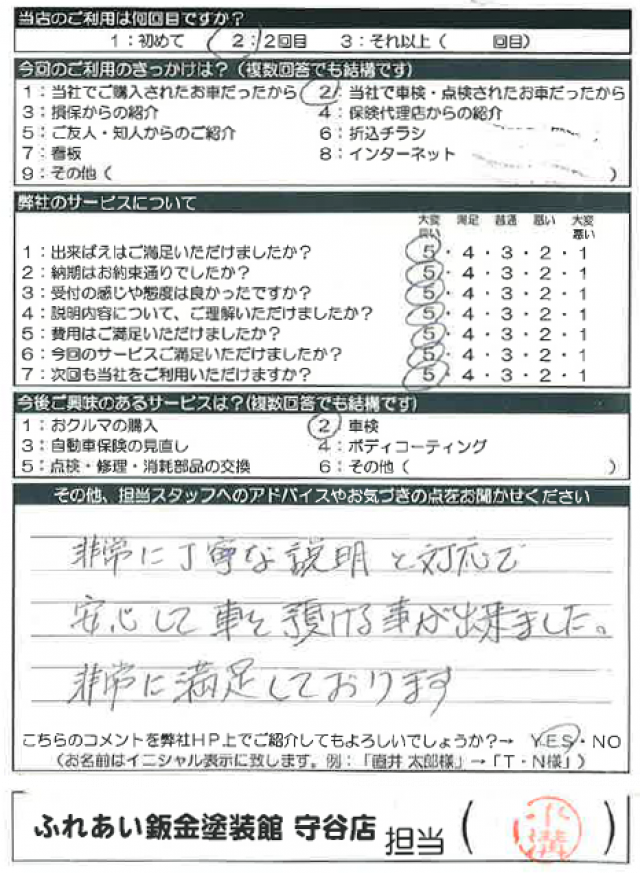 当店のご利用は何回目ですか？
1：初めて 2：2回目 3：それ以上（ 回目）
今回のご利用のきっかけは？（複数回答でも結構です）
1：当社でご購入されたお車だったから 2：当社で車検・点検されたお車だったから
3：損保からの紹介 4：保険代理店からの紹介
5：ご友人・知人からのご紹介 6：折込チラシ
7：看板 8：インターネット
9：その他（ ）
弊社のサービスについて
大変良い 満足 普通 悪い 大変悪い
1：出来ばえはご満足いただけましたか？ 5・4・3・2・1
2：納期はお約束通りでしたか？ 5・4・3・2・1
3：受付の感じや態度は良かったですか？ 5・4・3・2・1
4：説明内容について、ご理解いただけましたか？ 5・4・3・2・1
5：費用はご満足いただけましたか？ 5・4・3・2・1
6：今回のサービスご満足いただけましたか？ 5・4・3・2・1
7：次回も当社をご利用いただけますか？ 5・4・3・2・1
今後ご興味のあるサービスは？（複数回答でも結構です）
1：おクルマの購入 2：車検
3：自動車保険の見直し 4：ボディコーティング
5：点検・修理・消耗部品の交換 6：その他（ ）
その他、担当スタッフへのアドバイスやお気づきの点をお聞かせください
非常に丁寧な説明と対応で
安心して車を預ける事が出来ました。
非常に満足しております
こちらのコメントを弊社HP上でご紹介してもよろしいでしょうか？→ YES・NO
（お名前はイニシャル表示に致します。例：「直井 太郎様」→「T・N様」）
ふれあい鈑金塗装館 守谷店 担当（ ）